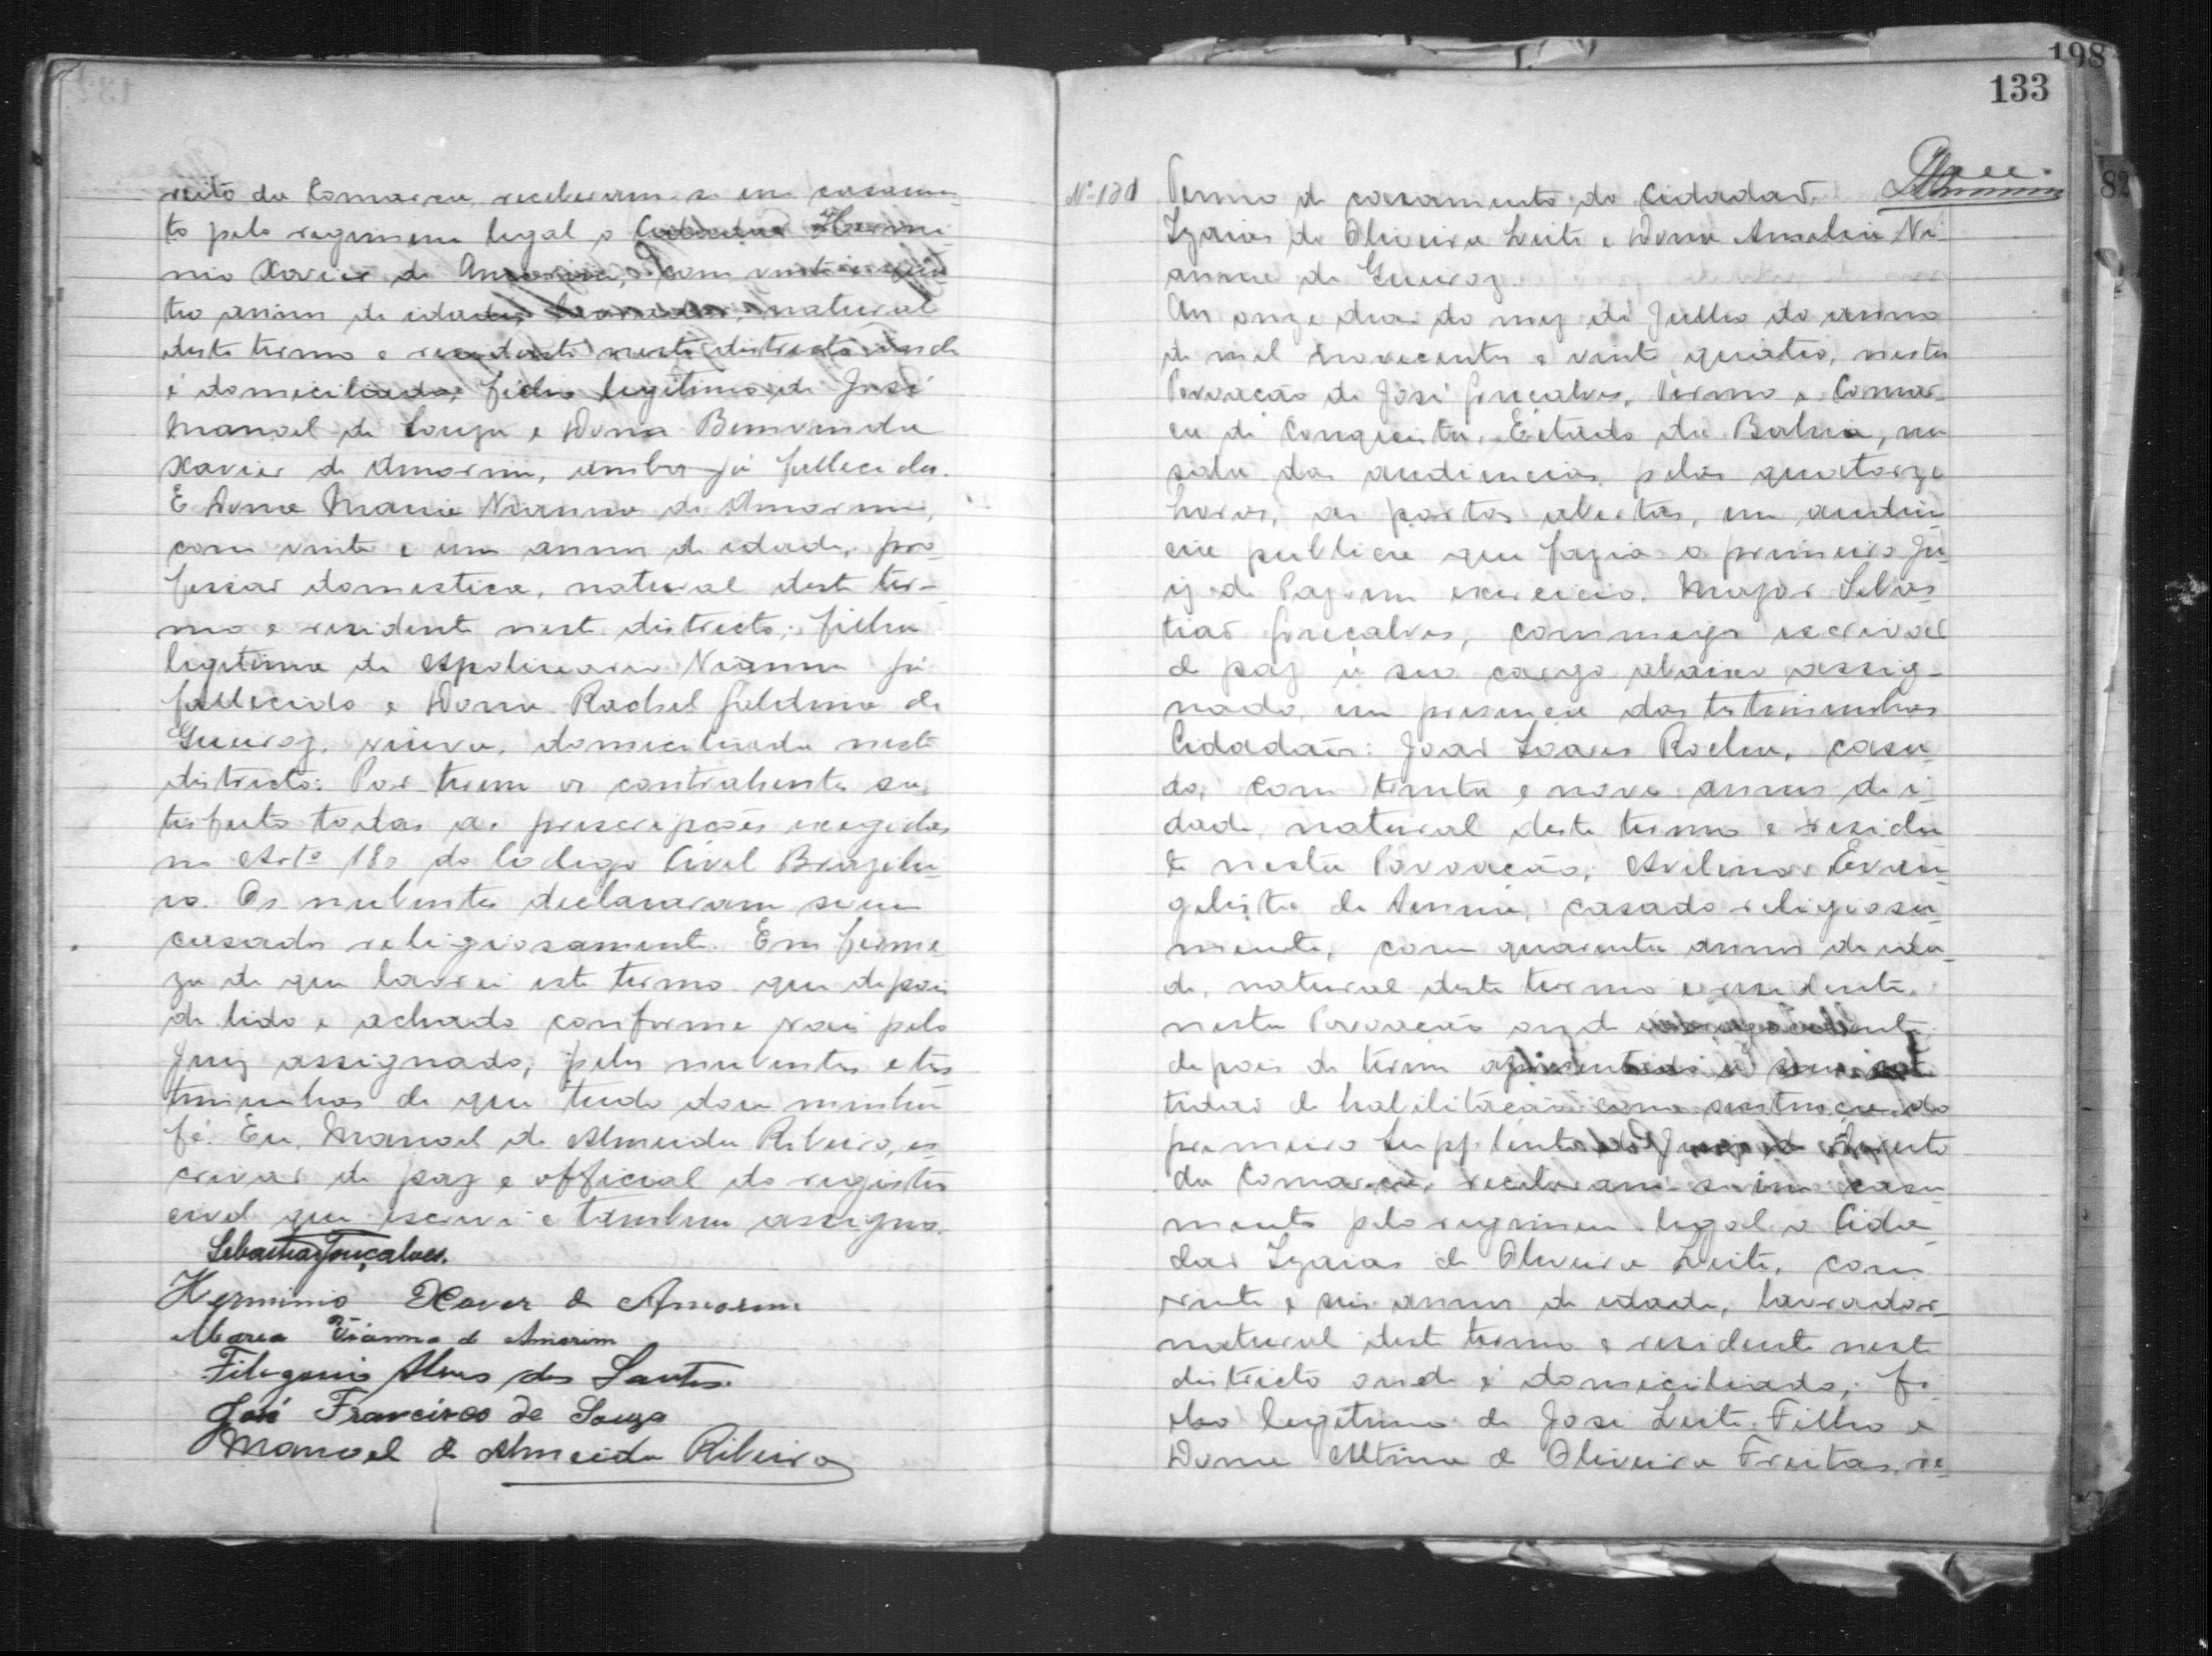 reito da Comarca, receberam-se em casamen-
to pelo regimem legal o Cidadão Hermi-
nio Xavier de Amorim, com vinte e qua-
tro annos de idade, lavrador, natural
deste termo e residente neste districto onde
é domiciliado, filho legitimo de José
Manoel de Souza e Dona Bemvinda
Xavier de Amorim, ambos já fallecidos.
E Dona Maria Vianna de Amorim,
com vinte e um annos de idade, pro-
fissão domestica, natural deste ter-
mo e residente neste districto; filha
legitima de Apolinario Vianna já
fallecido e Dona Rachel Galdina de
Queiroz, viuva, domiciliada neste
districto: Por terem os contrahentes sa-
tisfeito todas as prescripções exigidas
no Artº 180 do Codigo Civel Brazilei-
ro. Os nubentes declararam serem
casados religiosamente. Em firme-
za de que lavrei este termo que depois
de lido e achado conforme vai pelo
Juiz assignado, pelos nubentes e tes-
timunhas de que tudo dou minha
fé. Eu, Manoel de Almeida Ribeiro, es-
crivão de paz e official do registro
civel que escrevi e tambem assigno.
Sebastião Gonçalves.
Herminio Xavier de Amorim
Maria Vianna de Amorim
Filogonio Alves dos Santos.
José Francisco de Souza
Manoel de Almeida Ribeiro
198
133
82
Nº 131 Termo de casamento do Cidadão
Izaias de Oliveira Leite e Dona Amelia Vi-
anna de Queiroz
Aos onze dias do mez de Julho do anno
de mil novecentos e vinte quatro, nesta
Povoação de José Gonçalves, Termo e Comar-
ca de Conquista, Estado da Bahia, na
sala das audiencias, pelas quatorze
horas, as portas abertas, em audien-
cia publica que fazia o primeiro Ju-
iz de Paz em exercicio, Major Sebas-
tião Gonçalves, commigo escrivão
de paz á seu cargo abaixo assig-
nado, em presença das testimunhas
Cidadãos: João Soares Rocha, casa-
do, com trinta e nove annos de i-
dade, natural deste termo e residen-
te nesta Povoação; Avelino Evan-
gelista de casado religiosa-
mente, com quarenta annos de ida-
de, natural deste termo e residente
nesta Povoação onde
depois de terem apresentado
tidão de habilitação com sentença do
primeiro Supplente do Juiz de Direito
da Comarca, receberam-se em casa-
mento pelo regimen legal o Cida-
dão Izaias de Oliveira Leite, com
vinte e seis annos de idade, lavrador
natural deste termo e residente neste
districto onde é domiciliado; fi-
lho legitimo de José Leite Filho e
Dona Altina de Oliveira Freitas, re-